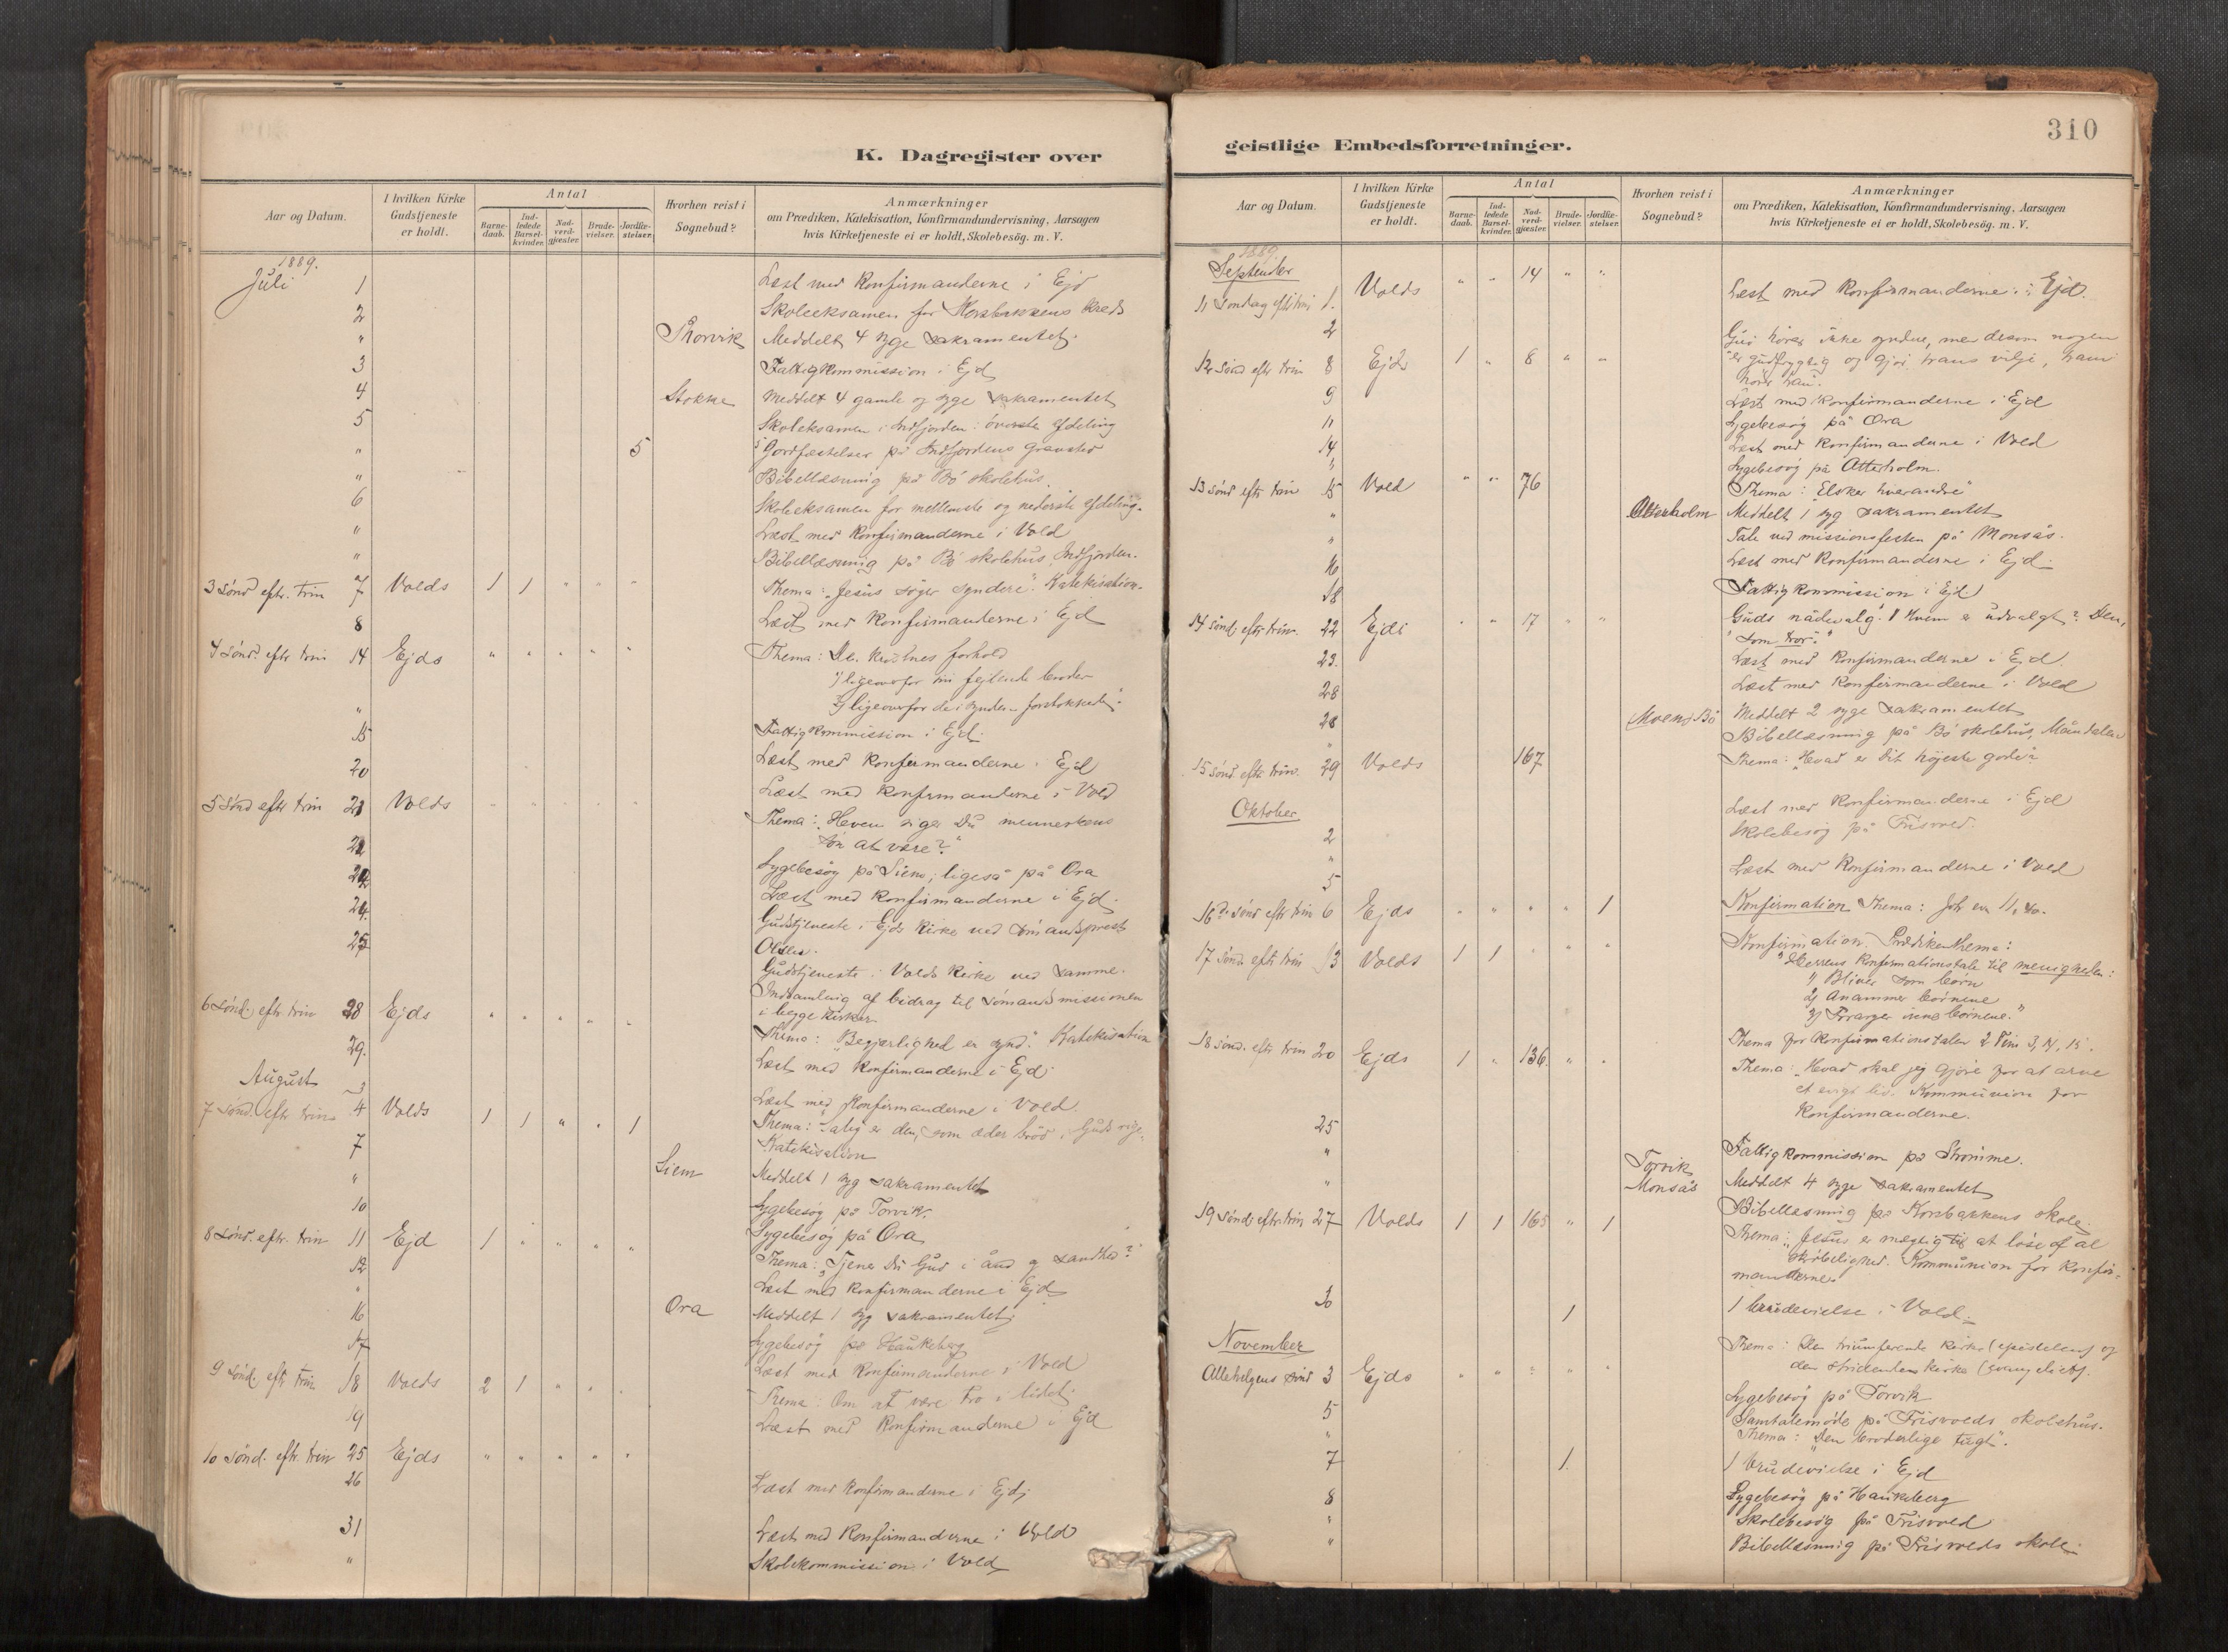 K. Dagregister over
Aar og Datum.
I hvilken Kirke Gudstjeneste er holdt.
Antal
Barnedaab.
Indledede Barselkvinder.
Nadverdgjæster.
Brudevielser.
Jordfæstelser.
Hvorhen reist i Sognebud?
Anmærkninger
om Prædiken, Katekisation, Konfirmandundervisning, Aarsagen
hvis Kirketjeneste ei er holdt, Skolebesög. m. V.
1889.
Juli 1 Læst med Konfirmanderne i Ejd
2 Skoleeksamen for Korsbakkens Kreds
" Thorvik Meddelt 4 syge sakramentet.
3 Fattigkommission i Ejd
4 Stokke Meddelt 4 gamle og syge sakramentet
5 Skoleksamen i Indfjorden: överste afdeling
" 5 5 Jordfæstelser på Indfjordens Gravsted
" Bibellæsning på Bö skolehus.
6 Skoleeksamen for mellemste og nederste afdeling.
" Læst med Konfirmanderne i Vold
" Bibellæsning på Bö skolehus, Indfjorden.
3 sönd eftr. trin 7 Volds 1 1 " " " Thema: "Jesus söger syndere". Katekisation.
8 Læst med Konfirmanderne i Ejd
4 sönd. eftr trin 14 Ejds " " " " " Thema: De kristnes forhold
1) ligeoverfor sin fejlende broder
2) ligeoverfor de i synden forstokkede".
15 Fattigkommission i Ejd.
20 Læst med Konfirmanderne i Ejd
5 sönd eftr trin 21 Volds Læst med Konfirmanderne i Vold
Thema: "Hvem siger Du menneskens
sön at være?"
Sygebesög på Siem, ligeså på Ora
Læst med Konfirmanderne i Ejd.
24. Gudstjeneste i Ejds Kirke ved sömandsprest
25 Olsen.
Gudstjeneste i Volds Kirke ved samme.
Indsamling af bidrag til sömandsmissionen
i begge kirker
6 sönd. eftr trin 28 Ejds " " " " " Thema: "Begjærlighed er synd". Katekisation
29. Læst med Konfirmanderne i Ejd
August 3 Læst med Konfirmanderne i Vold
7 sönd. eftr trin 4 Volds 1 1 " " 1 Thema: Salig er den, som æder bröd i Guds rige.
Katekisation
7 Siem Meddelt 1 syg sakramentet
" Sygebesög på Torvik.
10 Sygebesög på Ora
8 sönd. eftr. trin 11 Ejd 1 " " " " Thema: "Tjener Du Gud i ånd og sandhed?"
12 Læst med Konfirmanderne i Ejd
" Ora Meddelt 1 syg sakramentet
16 Sygebesög på Haukeberg
17 Læst med Konfirmanderne i Vold
9 sönd. eftr trin 18 Volds 2 1 " " " Thema: Om at være tro i lidet.
19 Læst med Konfirmanderne i Ejd
10 sönd. eftr trin 25 Ejds " " " " "
26 Læst med Konfirmanderne i Ejd
31 Læst med Konfirmanderne i Vold
" Skolekommission i Vold
310
geistlige Embedsforretninger.
Aar og Datum.
I hvilken Kirke Gudstjeneste er holdt.
Antal
Barnedaab.
Indledede Barselkvinder.
Nadverdgjæster.
Brudevielser.
Jordfæstelser.
Hvorhen reist i Sognebud?
Anmærkninger
om Prædiken, Katekisation, Konfirmandundervisning, Aarsagen
hvis Kirketjeneste ei er holdt, Skolebesög. m. V.
1889.
September
11 söndag eftr trin 1. Volds " " 14 " "
2 Læst med Konfirmanderne i Ejd.
12 sönd eftr trin 8 Ejds 1 " 8 " " Gud hörer ikke syndere, men dersom nogen
er gudfrygtig og gjör hans vilje, ham
hörer han.
9 Læst med Konfirmanderne i Ejd
11 Sygebesög på Ora
14 Læst med Konfirmanderne i Vold
" Sygebesög på Otterholm.
13 sönd eftr trin 15 Vold " " 76 Thema: "Elsker hverandre"
" Otterholm Meddelt 1 syg sakramentet
" Tale ved missionsfesten på Monsås.
16 Læst med Konfirmanderne i Ejd
18 Fattigkommission i Ejd
14 sönd. eftr trin. 22 Ejds " " 17 " " Guds nådevalg. "Hvem er udvalgt? Den,
som tror."
23. Læst med Konfirmanderne i Ejd.
28 Læst med Konfirmanderne i Vold
28 Moen, Bö Meddelt 2 syge sakramentet
" Bibellæsning på Bö skolehus, Måndalen
15 sönd. eftr trin. 29 Volds 167 Thema: "Hvad er dit höjeste gode?"
Oktober
2 Læst med Konfirmanderne i Ejd
" Skolebesög på Frisvold.
5 Læst med Konfirmanderne i Vold
16de sönd eftr trin 6 Ejds " " " " 1 Konfirmation Thema: Joh ev 11, 40.
17 sönd eftr trin 13 Volds 1 1 " " " Konfirmation. Prædiken thema:
"Herrens Konfirmationstale til menigheden:
1) Bliver som börn
2) Anammer börnene
3) Forarger ikke börnene."
Thema for Konfirmationstalen 2 Tim 3, 14, 15.
18 sönd. eftr trin 20 Ejds 1 " 136 " " Thema: "Hvad skal jeg gjöre for at arve
et evigt liv. Kommunion for
Konfirmanderne.
25 Fattigkommission på Strömme.
" Torvik Monsås Meddelt 4 syge sakramentet
" Bibellæsning på Korsbakkens skole.
19 sönd. eftr. trin 27 Volds 1 1 165 " 1 Thema: "Jesus er mægtig til at löse af al
skröbelighed. Kommunion for Konfir-
manderne
30 1 1 brudevielse i Vold.
November
Allehelgens sönd 3 Ejds " " " " " Thema: Den triumferende kirke (epistelen) og
den stridende kirke (evangeliet).
5 Sygebesög på Torvik
" Samtalemöde på Frisvolds skolehus.
Thema: "Den broderlige tugt".
7 1 1 brudevielse i Ejd
8 Sygebesög på Haukeberg
" Skolebesög på Frisvold
" Bibellæsning på Frisvolds skole